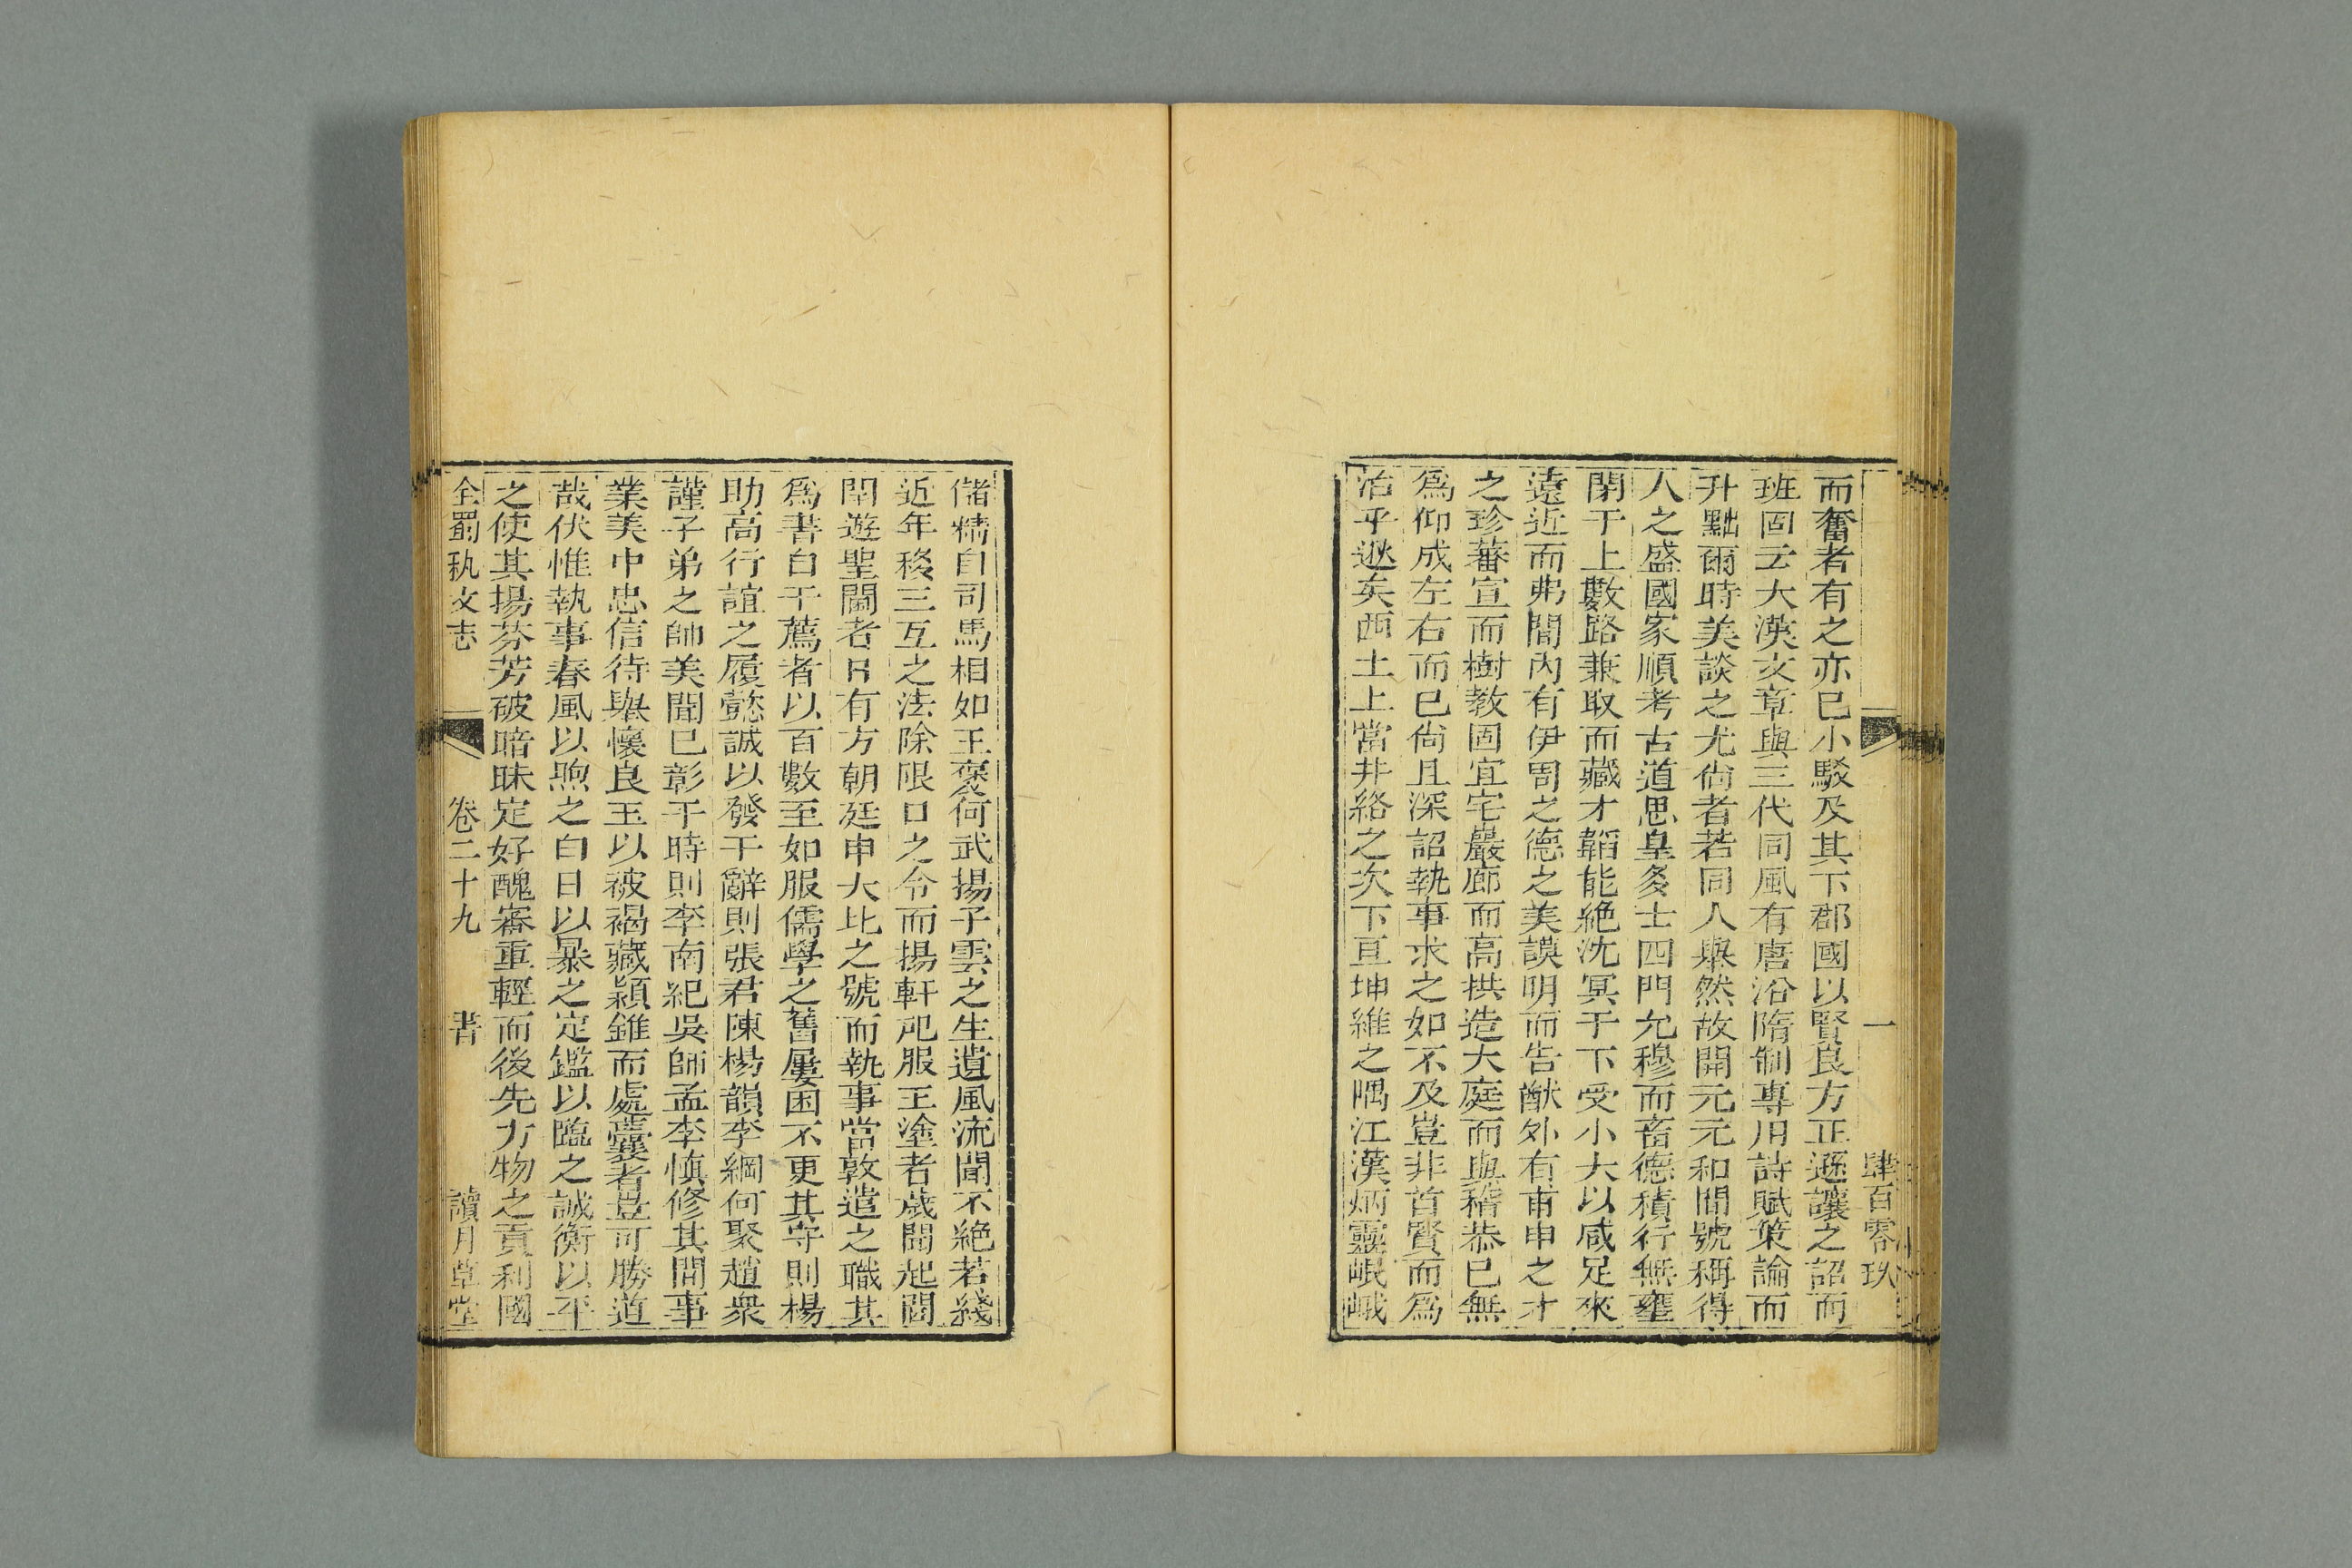 一 肆百零玖
而奮者有之亦已小駁及其下郡國以賢良方正遜讓之詔而
班固云大漢文章與三代同風有唐沿隋制專用詩賦策論而
升黜爾時美談之尤尙者若同人舉然故開元元和間號稱得
人之盛國家順考古道思皇多士四門允穆而畜德積行無壅
閉于上數路兼取而藏才韜能絶沈冥于下受小大以咸足來
遠近而弗間內有伊周之德之美謨明而告猷外有甫申之才
之珍蕃宣而樹敎固宜宅巖廊而高拱造大庭而與稽恭已無
爲仰成左右而已尙且深詔執事求之如不及豈非首賢而爲
冶乎逖矣西土上當井絡之次下亘坤維之隅江漢炳靈岷峨
儲精自司馬相如王褒何武揚子雲之生遺風流聞不絶若綫
近年移三互之法除限口之令而揚軒祀服王塗者歲間起閭
閈遊聖閫者日有方朝廷申大比之號而執事當敦遣之職其
爲書自干薦者以百數至如服儒學之舊屢困不更其守則楊
助高行誼之履懿誠以發干辭則張君陳楊韻李綱何聚趙衆
謹子弟之帥美聞已彰于時則李南紀吳師孟李愼修其間事
業美中忠信待舉懷良玉以被褐藏穎錐而處囊者豈可勝道
哉伏惟執事春風以煦之白日以暴之定鑑以臨之誠衡以平
之使其揚芬芳破暗昧定好醜審重輕而後先方物之貢利國
全蜀秇文志 卷二十九 書 讀月草堂